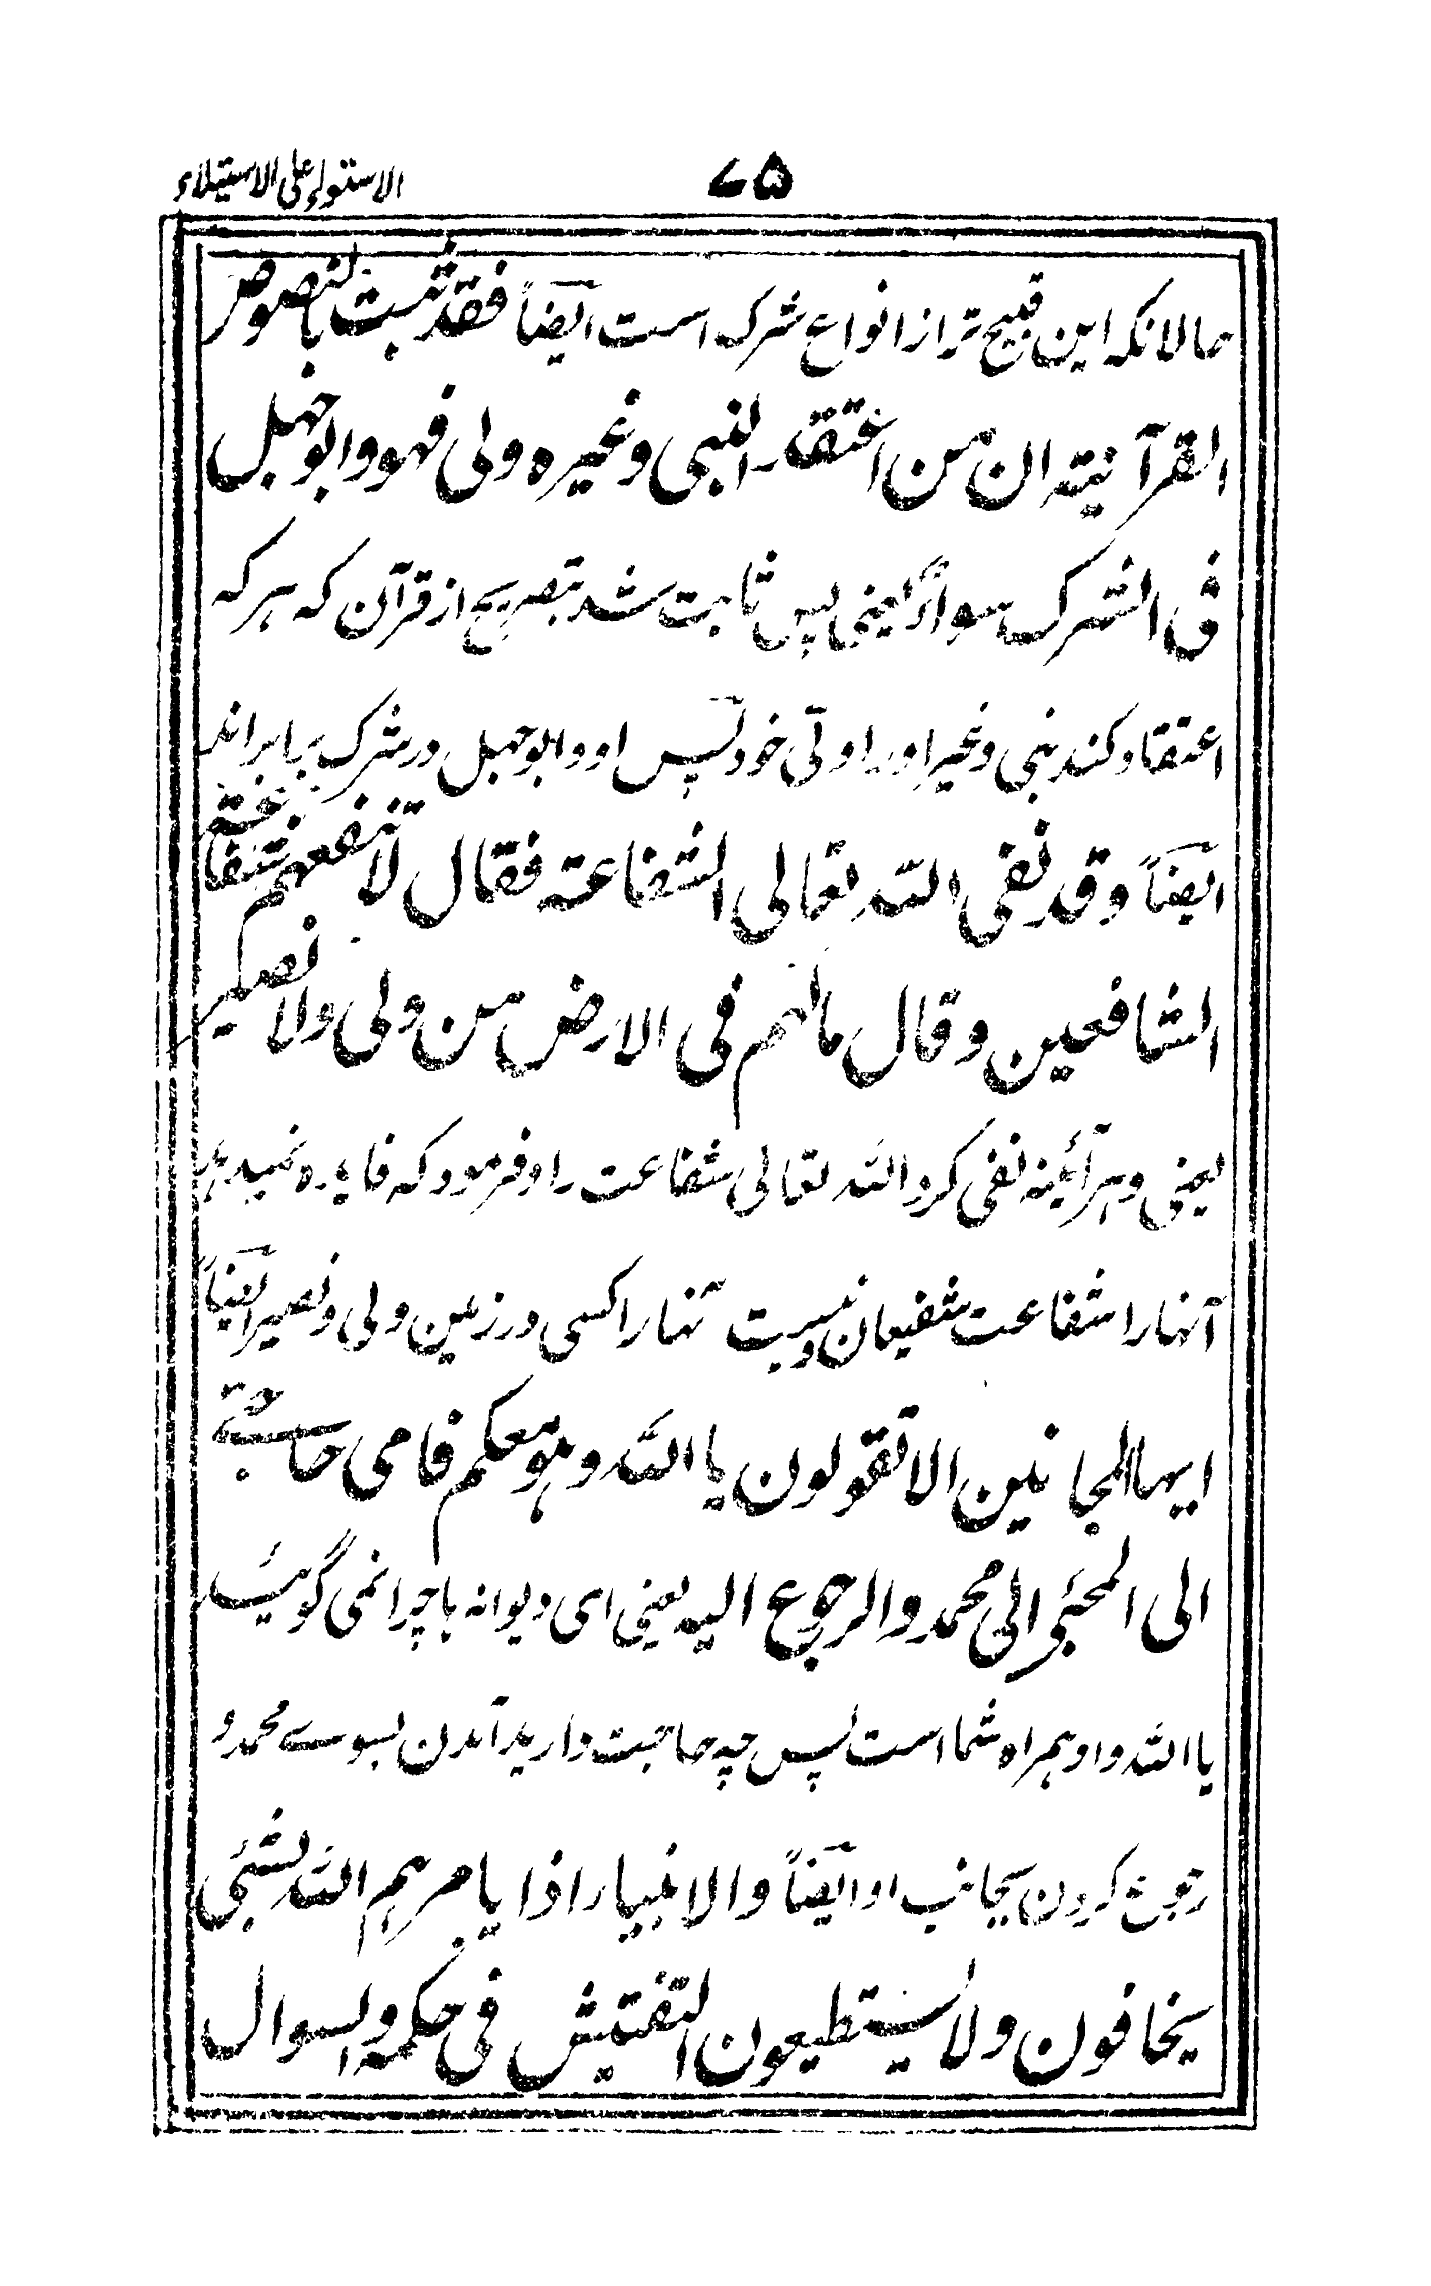 ۷۵
الاستواء علی الاستیلاء
حالانکه این قبیح تر از انواع شرک است ایضاً فقد ثبت بالنصوص
القرآنیته ان من اعتقد النبی وغیره ولی فهو وابوجهل
فی الشرک سواءً یعنی پس ثابت شد بتصریح از قرآن که هر که
اعتقاد کند نبی وغیر اورا ولی خود پس او وابوجهل در شرک برابر اند
ایضاً وقد نفی الله تعالی الشفاعته فقال لا تنفعهم شفاعته
الشافعین وقال مالهم فی الارض من ولی ولا نصیر
یعنی وهر آئینه نفی کرد الله تعالی شفاعت را وفرمود که فایده نمیدهد
آنها را شفاعت شفیعان ونیست تنها را کسی در زمین ولی ونصیر ایضاً
ایها المجانین الا تقولون یا الله وهو معکم فای حاجته
الی المجئی الی محمد والرجوع الیه یعنی ای دیوانه با چرا نمی گوئید
یا الله واو همراه شما است پس چه حاجت دارید آمدن بسوے محمد و
رجوع کردن بجانب او ایضاً والانبیاء اذا یامرهم الله بشئی
یخافون ولا یستطیعون التفتیش فی حکمه والسوال